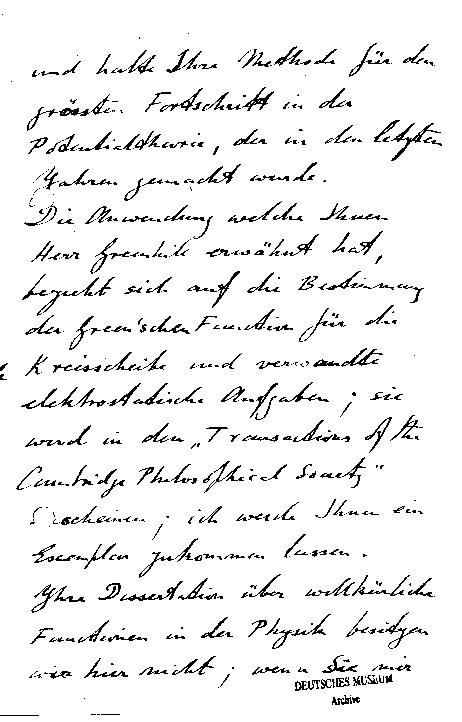 und halte Ihre Methode für den
grössten Fortschritt in der
Potentialtheorie, der in den letzten
Jahren gemacht wurde.
Die Anwendung welche Ihnen
Herr Greenhill erwähnt hat,
bezieht sich auf die Bestimmung
der Green'schen Function für die
Kreisscheibe und verwandte
elektrostatische Aufgaben; sie
wird in den „Transactions of the
Cambridge Philosophical Society"
Erscheinen; ich werde Ihnen ein
Exemplar zukommen lassen.
Ihre Dissertation über willkürliche
Functionen in der Physik besitzen
wir hier nicht; wenn Sie mir
DEUTSCHES MUSEUM
Archive